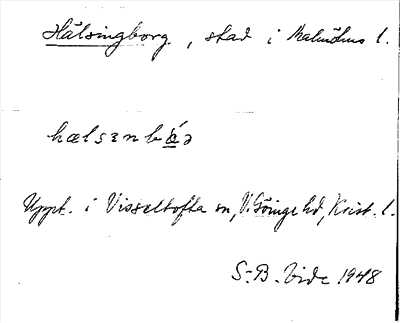 Hälsingborg, stad i Malmöhus l.
hælsɪnbá̱ə
Uppt. i Visseltofta sn, V. Göinge hd, Krist. l.
S-B. Vide 1948